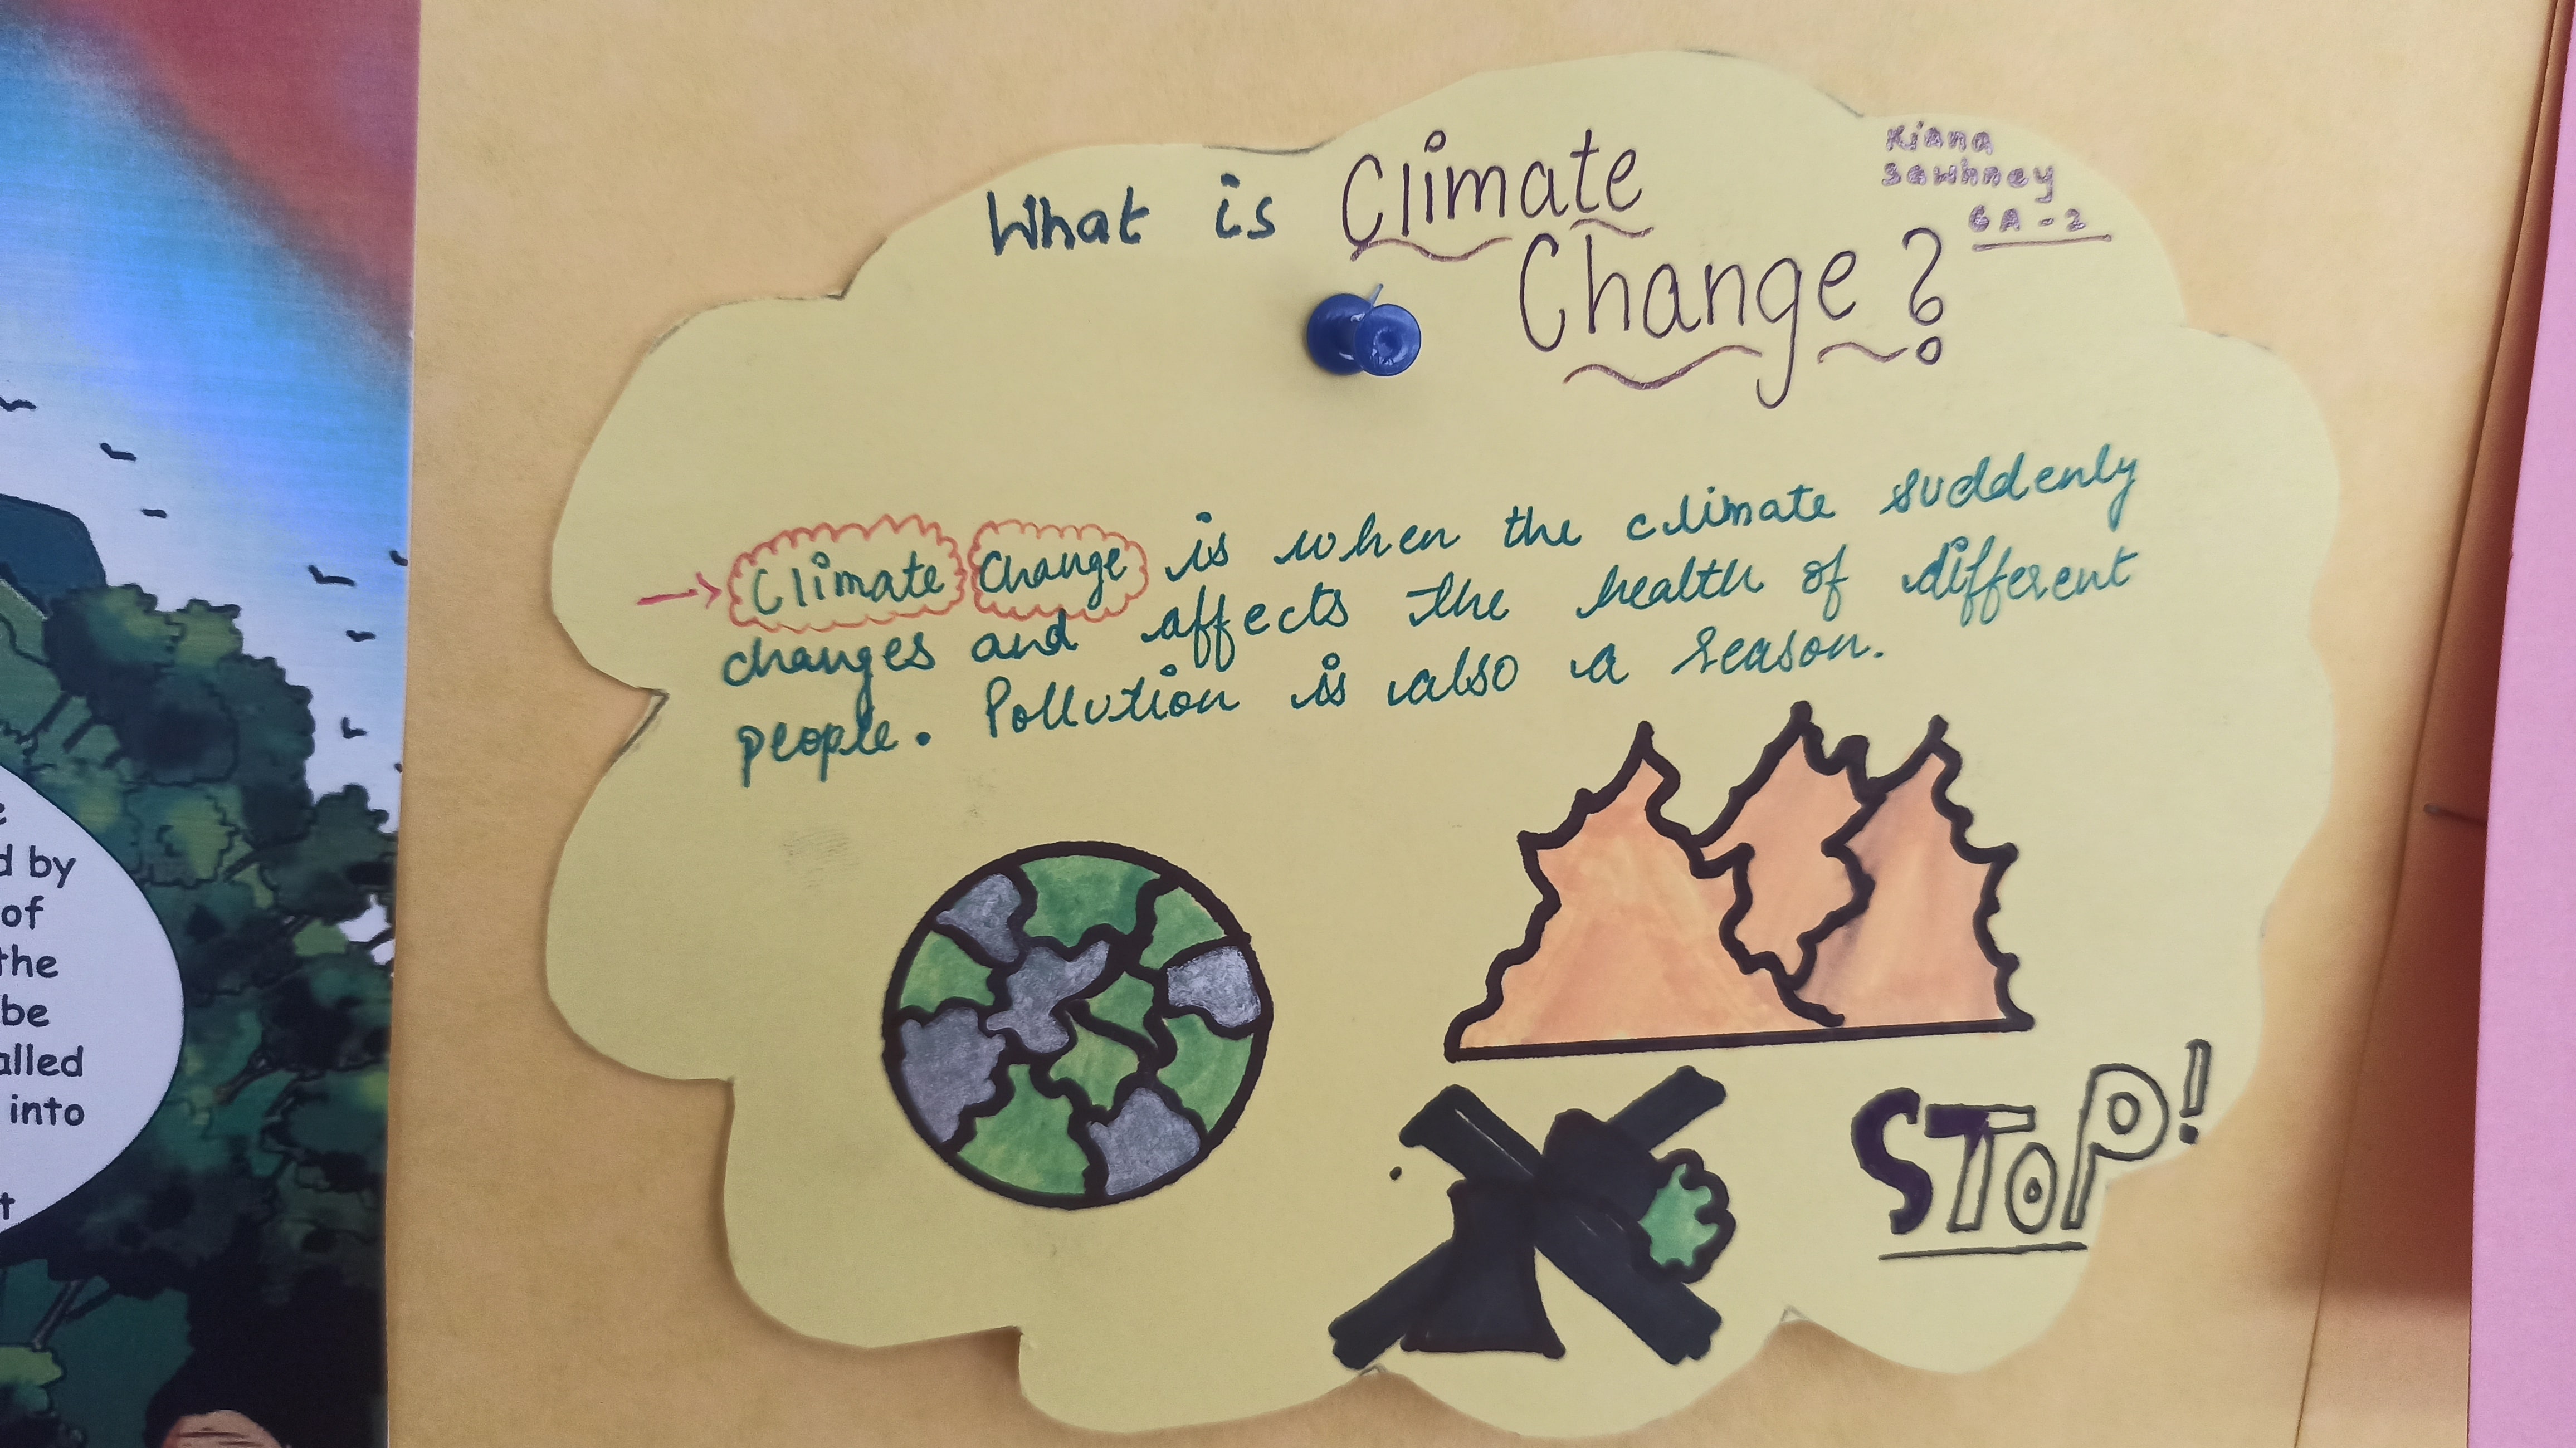 What is Climate
Change?
Kiana
Sawhney
6A-2
→ Climate Change is when the climate suddenly
changes and affects the health of different
people. Pollution is also a season.
STOP!
e
d by
of
the
be
alled
into
t